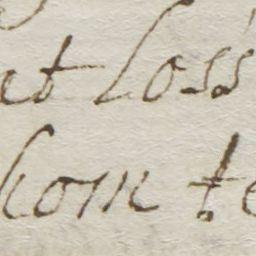 at Loss
hom te